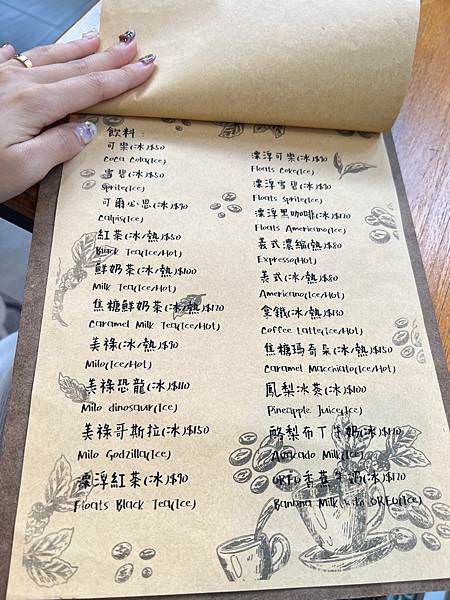 飲料:
可樂(冰)$50
Coca Cola(Ice)
雪碧(冰)$50
Sprite(Ice)
可爾必思(冰)$90
Calpis(Ice)
紅茶(冰/熱)$50
Black Tea(Ice/Hot)
鮮奶茶(冰/熱)$100
Milk Tea(Ice/Hot)
焦糖鮮奶茶(冰/熱)$170
Caramel Milk Tea(Ice/Hot)
美祿(冰/熱)$90
Milo(Ice/Hot)
美祿恐龍(冰)$110
Milo dinosaur(Ice)
美祿哥斯拉(冰)$150
Milo Godzilla(Ice)
漂浮紅茶(冰)$90
Floats Black Tea(Ice)
漂浮可樂(冰)$90
Floats Coke(Ice)
漂浮雪碧(冰)$90
Floats Sprite(Ice)
漂浮黑咖啡(冰)$120
Floats Americano(Ice)
義式濃縮(熱)$80
Expresso(Hot)
美式(冰/熱)$80
Americano(Ice/Hot)
拿鐵(冰/熱)$130
Coffee Latte(Ice/Hot)
焦糖瑪奇朵(冰/熱)$150
Caramel Macchiato(Ice/Hot)
鳳梨冰茶(冰)$100
Pineapple Juice(Ice)
酪梨布丁牛奶(冰)
Avocado Milk(Ice)
OREO香蕉牛奶(冰)$170
Banana Milk with OREO(Ice)